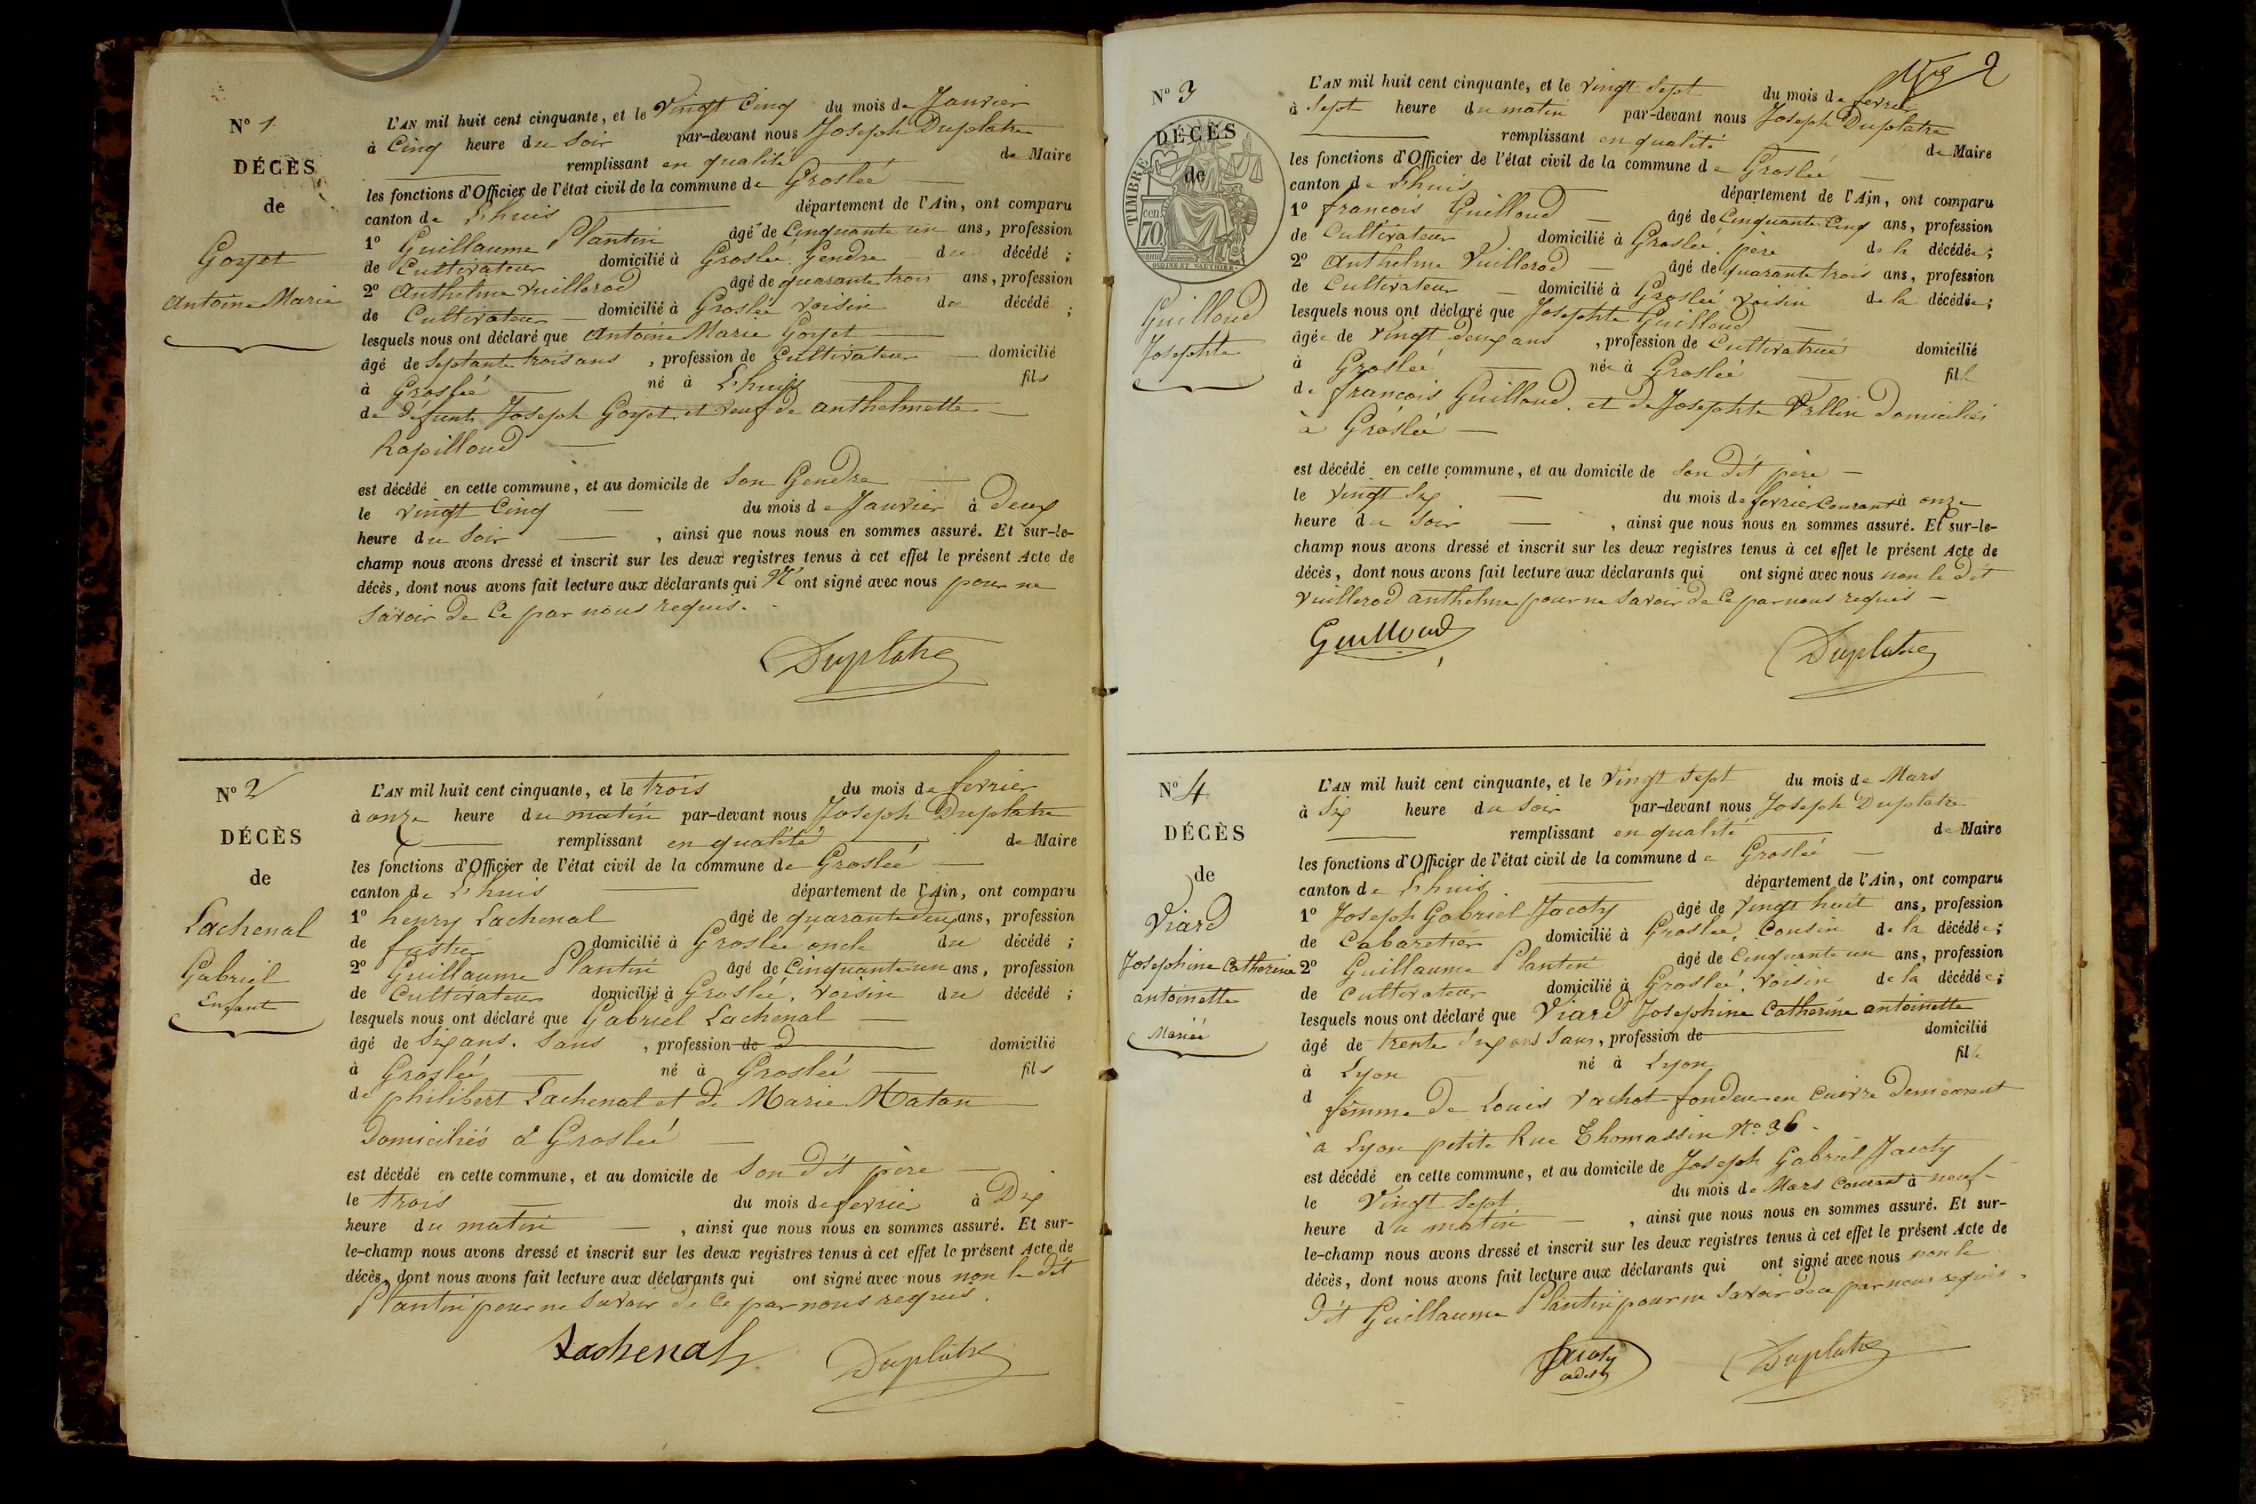 N° 1
DÉCÈS
de
Goyet
Antoine Marie
L'AN mil huit cent cinquante, et le vingt cinq du mois de Janvier
à cinq heure du soir par-devant nous Joseph Duplatre
remplissant en qualité de Maire
les fonctions d'Officier de l'état civil de la commune de Groslée
canton de L'huis département de l'Ain, ont comparu
1° Guillaume Plantin âgé de cinquante un ans, profession
de Cultivateur domicilié à Groslée, Gendre du décédé ;
2° Anthelme Vuillerod âgé de quarante trois ans, profession
de Cultivateur domicilié à Groslée voisin du décédé ;
lesquels nous ont déclaré que Antoine Marie Goyet
âgé de Septante trois ans , profession de Cultivateur domicilié
à Groslée né à L'huis fils
de défunt Joseph Goyet et veuf de anthelmette
Rapilloud
est décédé en cette commune, et au domicile de son Gendre
le vingt cinq du mois de Janvier à deux
heure du soir , ainsi que nous nous en sommes assuré. Et sur-le-
champ nous avons dressé et inscrit sur les deux registres tenus à cet effet le présent Acte de
décès, dont nous avons fait lecture aux déclarants qui N'ont signé avec nous pour ne
savoir de ce par nous requis.
Duplatre
N° 2
DÉCÈS
de
Lachenal
Gabriel
Enfant
L'AN mil huit cent cinquante, et le trois du mois de fevrier
à onze heure du matin par-devant nous Joseph Duplatre
remplissant en qualité de Maire
les fonctions d'Officier de l'état civil de la commune de Groslée
canton de L'huis département de l'Ain, ont comparu
1° henry Lachenal âgé de quarante deux ans, profession
de domicilié à Groslée oncle du décédé ;
2° Guillaume Plantin âgé de Cinquante un ans, profession
de Cultivateur domicilié à Groslée, voisin du décédé ;
lesquels nous ont déclaré que Gabriel Lachenal
âgé de Six ans. Sans , profession de domicilié
à Groslée né à Groslée fils
de philibert Lachenal et de Marie Matan
Domiciliés à Groslée
est décédé en cette commune, et au domicile de son dit père
le trois du mois de fevrier à Dix
heure du matin , ainsi que nous nous en sommes assuré. Et sur-
le-champ nous avons dressé et inscrit sur les deux registres tenus à cet effet le présent Acte de
décès, dont nous avons fait lecture aux déclarants qui ont signé avec nous non le dit
Plantin pour ne savoir de ce par nous requis.
Lachenal Duplatre
2
N° 3
DÉCÈS
de
TIMBRE
70
Guilloud
Josephte
L'AN mil huit cent cinquante, et le vingt sept du mois de fevrier
à sept heure du matin par-devant nous Joseph Duplatre
remplissant en qualité de Maire
les fonctions d'Officier de l'état civil de la commune de Groslée
canton de L'huis département de l'Ain, ont comparu
1° francois Guilloud âgé de Cinquante Cinq ans, profession
de Cultivateur domicilié à Groslée, père de la décédée ;
2° Anthelme Vuillerod âgé de quarante trois ans, profession
de Cultivateur domicilié à Groslée voisin de la décédée ;
lesquels nous ont déclaré que Josephte Guilloud
âgée de vingt deux ans , profession de Cultivatrice domicilié
à Groslée née à Groslée fille
de francois Guilloud et de Josephte Vellin domiciliés
à Groslée
est décédé en cette commune, et au domicile de son dit père
le vingt six du mois de fevrier courant à onze
heure du soir , ainsi que nous nous en sommes assuré. Et sur-le-
champ nous avons dressé et inscrit sur les deux registres tenus à cet effet le présent Acte de
décès, dont nous avons fait lecture aux déclarants qui ont signé avec nous non le dit
Vuillerod anthelme pour ne savoir de ce par nous requis
Guilloud Duplatre
N° 4
DÉCÈS
de
Viard
Josephine Catherine
antoinette
Mariée
L'AN mil huit cent cinquante, et le vingt sept du mois de Mars
à six heure du soir par-devant nous Joseph Duplatre
remplissant en qualité de Maire
les fonctions d'Officier de l'état civil de la commune de Groslée
canton de L'huis département de l'Ain, ont comparu
1° Joseph Gabriel Jacoty âgé de vingt huit ans, profession
de Cabaretier domicilié à Groslée, Cousin de la décédée ;
2° Guillaume Plantin âgé de Cinquante un ans, profession
de Cultivateur domicilié à Groslée, voisin de la décédée ;
lesquels nous ont déclaré que Viard Josephine Catherine antoinette
âgé de trente six ans sans, profession de domicilié
à Lyon né à Lyon fille
d femme de Louis Vachot fondeur en cuivre demeurant
à Lyon petite Rue Thomassin N° 36
est décédé en cette commune, et au domicile de Joseph Gabriel Jacoty
le Vingt sept du mois de Mars Courant à neuf
heure du matin , ainsi que nous nous en sommes assuré. Et sur-
le-champ nous avons dressé et inscrit sur les deux registres tenus à cet effet le présent Acte de
décès, dont nous avons fait lecture aux déclarants qui ont signé avec nous non le
dit Guillaume Plantin pour ne savoir de ce par nous requis.
Jacoty Duplatre